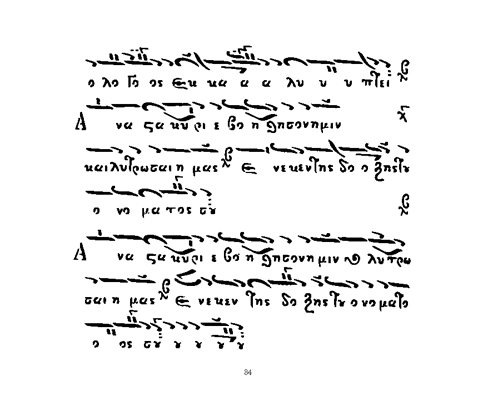 ο λο γο ος εκ κα α α λυ υ υ πτει
Α να ϛα κυ ρι ε βο η θησονημιν
και λυτρωσαι η μας Ε νεκεντης δο ο ξηςτȣ
ο νο μα τος σȣ
Α να ϛα κυ ρι ε βο η θησονη μιν ϗ λυ τρω
σαι η μας Ε νεκεν της δο ξης τȣ ονοματο
ο ος σȣ ȣ ȣ ȣ ȣ
34